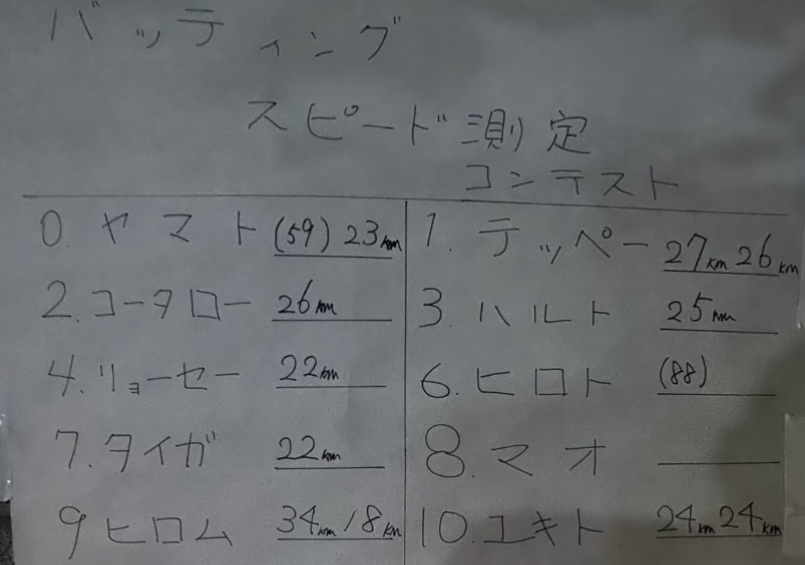 バッティング
スピード測定
コンテスト
0. ヤマト (59) 23km
1. テッペー 27km 26km
2. コータロー 26km
3. ハルト 25km
4. リョーセー 22km
6. ヒロト (88)
7. タイガ 22km
8. マオ
9 ヒロム 34km 18km
10. ユキト 24km 24km